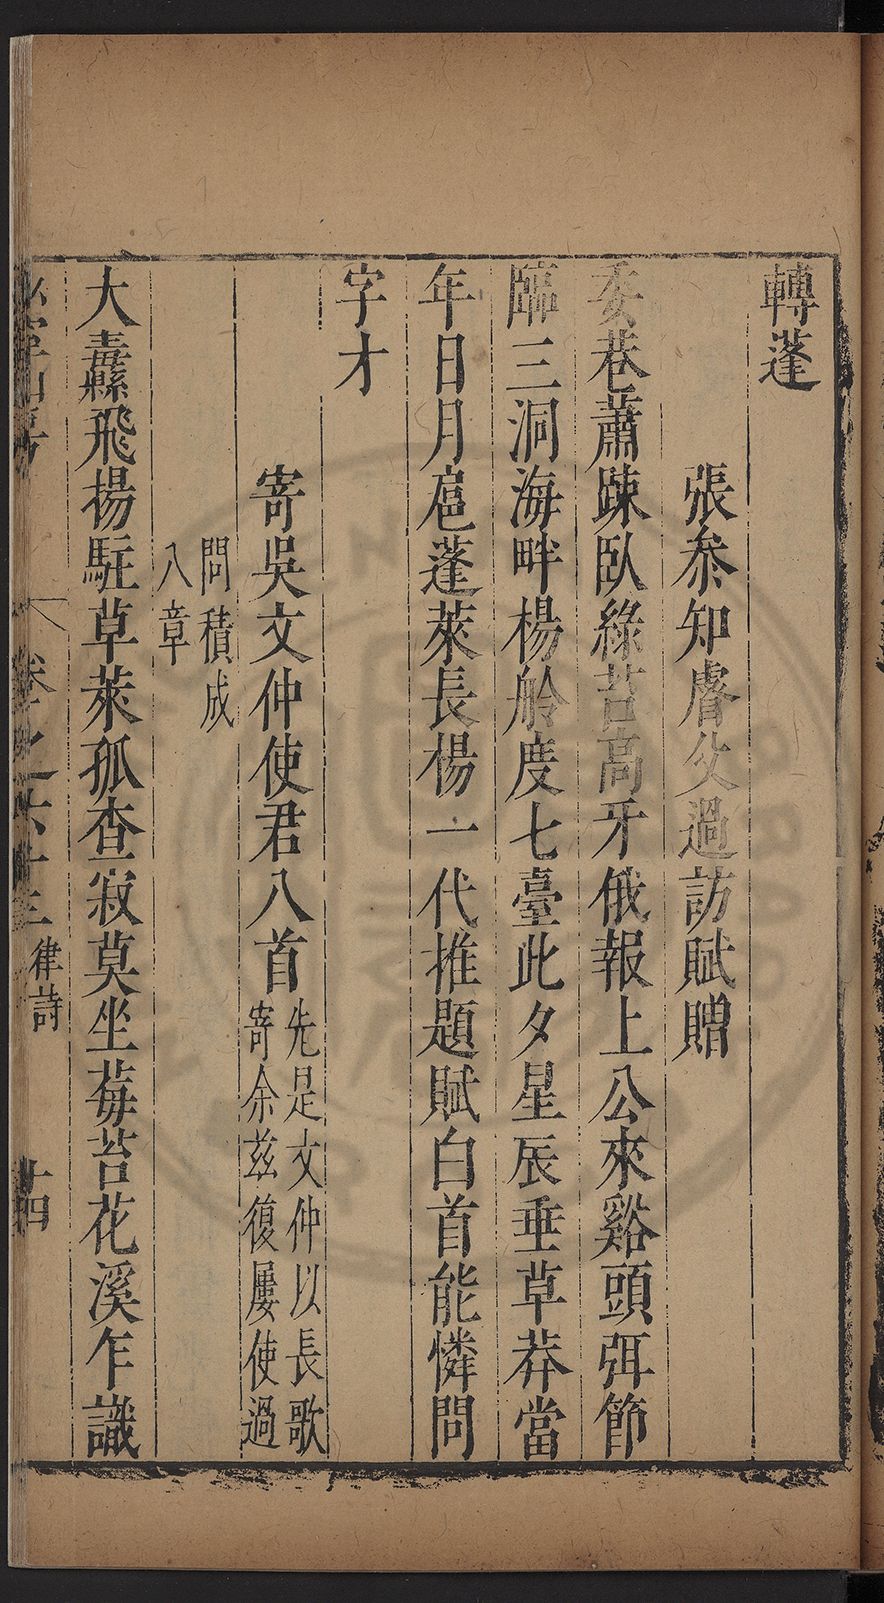 轉蓬
張叅知睿父過訪賦贈
委巷蕭踈臥綠苔高牙俄報上公來谿頭弭節
臨三洞海畔楊舲度七臺此夕星辰垂草莽當
年日月扈蓬萊長楊一代推題賦白首能憐問
字才
寄吳文仲使君八首先是文仲以長歌
寄余茲復屢使過
問積成
八章
大纛飛揚駐草萊孤查寂莫坐莓苔花溪乍識
卷之六十三 律詩 十四